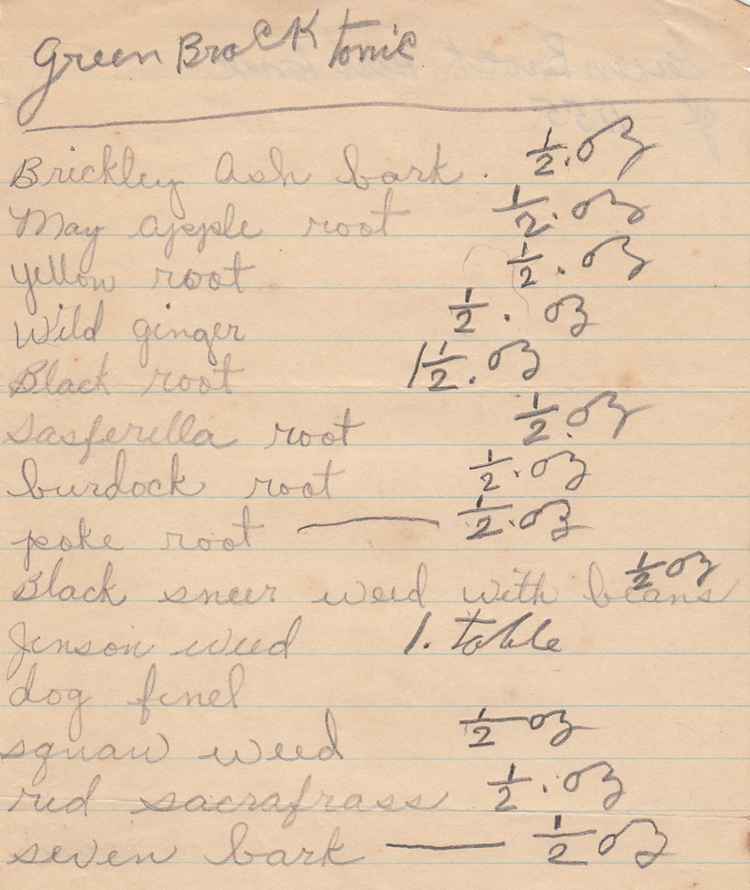 Green Brock tonic
Brickley Ash bark . 1/2 . oz
May apple root 1/2 . oz
yellow root 1/2 . oz
Wild ginger 1/2 . oz
Black root 1 1/2 . oz
Sasferilla root 1/2 . oz
burdock root 1/2 . oz
poke root — 1/2 . oz
Black sneer weed with beans 1/2 oz
Jinson weed 1 . table
dog finel
squaw weed 1/2 oz
red sacrafrass 1/2 . oz
seven bark — 1/2 oz